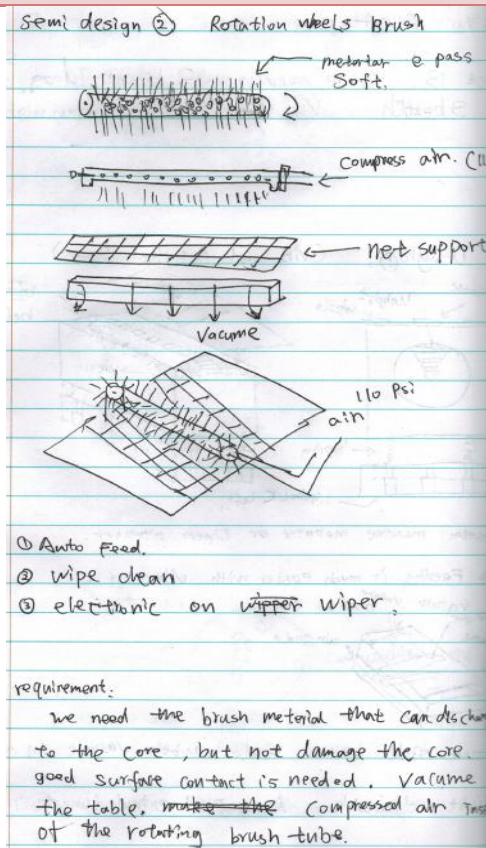 Semi design ② Rotation wheels Brush
meteriar e pass
Soft.
compress air. (
net support
Vacume
110 Psi
air
① Auto Feed.
② wipe clean
③ electronic on wipper wiper.
requirement:
we need the brush meterial that can disch
to the core, but not damage the core.
good surface contact is needed. Vacume
the table. make the compressed air
of the rotating brush tube.